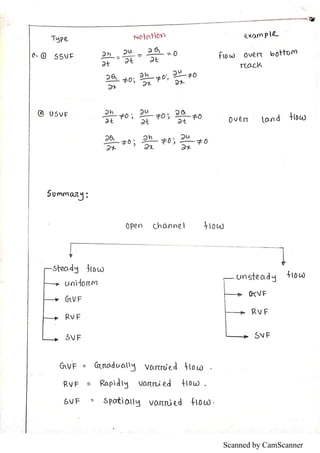 Type Notation example
e. ① SSVF ∂h/∂t = ∂u/∂t = ∂Q/∂t = 0 flow over bottom rack
∂Q/∂x ≠ 0; ∂h/∂x ≠ 0; ∂u/∂x ≠ 0
② USVF ∂h/∂t ≠ 0; ∂u/∂t ≠ 0; ∂Q/∂t ≠ 0 over land flow
∂Q/∂x ≠ 0; ∂h/∂x ≠ 0; ∂u/∂x ≠ 0
Summary:
open channel flow
steady flow
uniform
GVF
RVF
SVF
unsteady flow
GVF
RVF
SVF
GVF = Gradually varried flow.
RVF = Rapidly varried flow.
SVF = Spatially varried flow.
Scanned by CamScanner